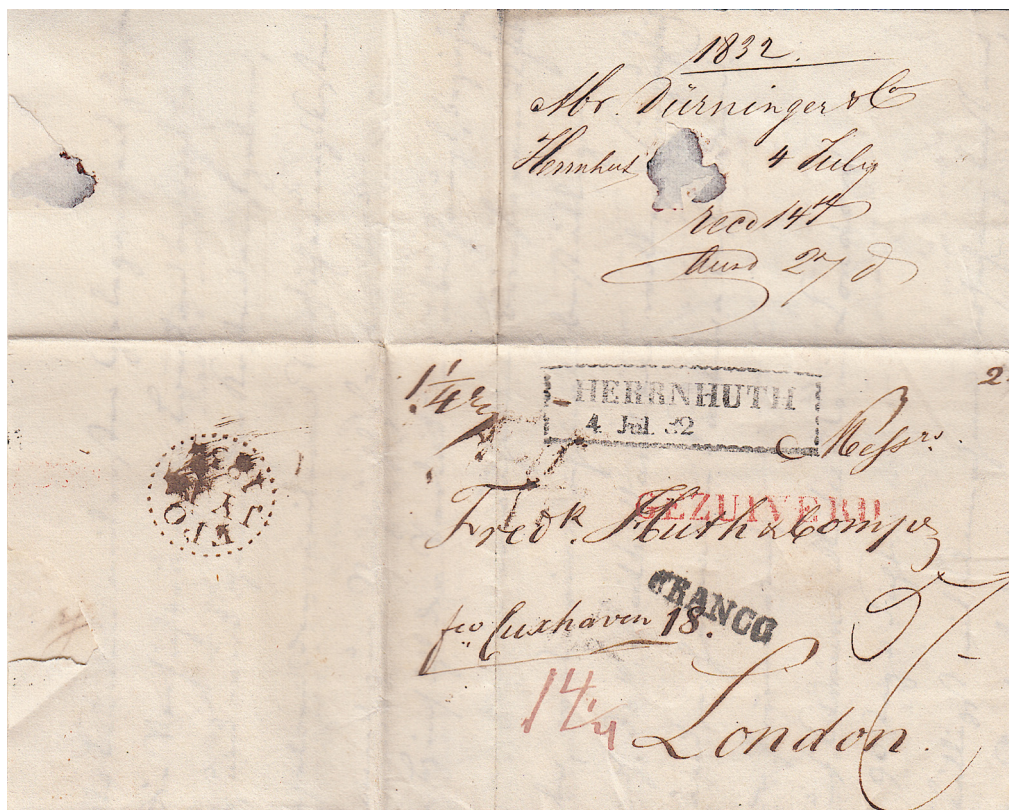 1832.
Abr. Dürninger & Co
Herrnhut 4 July
recd 14th
27 d
1 1/4
HERRNHUTH
4 Jul. 32
2
Messrs.
GEZUIVERD
Fredk. Huth & Compy
fco Cuxhaven 18.
FRANCO
14/4
London.